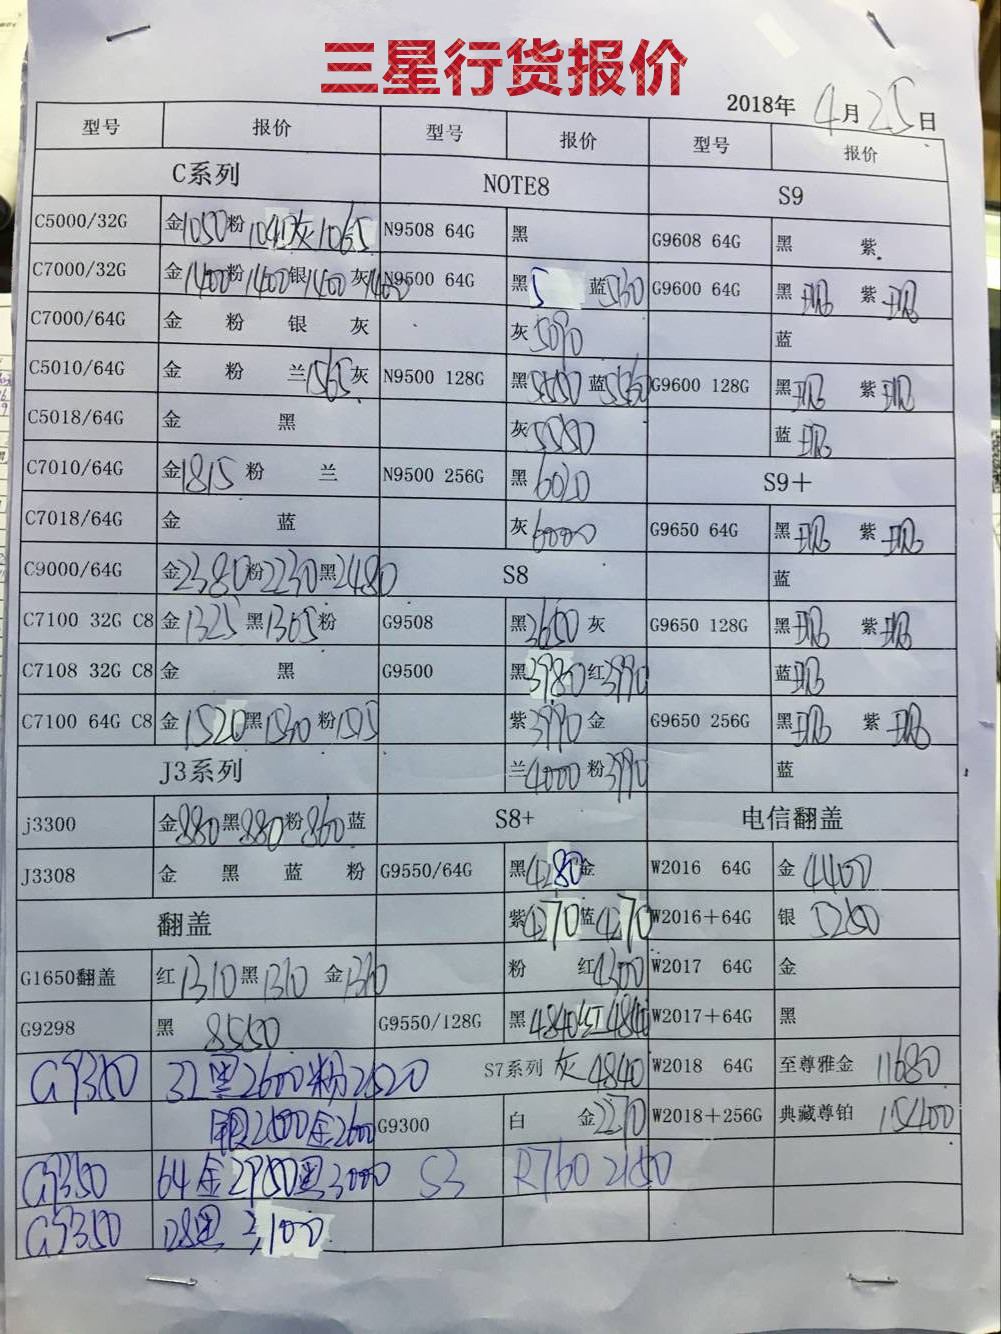 三星行货报价
2018年 4月25日
型号 报价 型号 报价 型号 报价
C系列 NOTE8 S9
C5000/32G 金1050粉1040灰1065 N9508 64G 黑 G9608 64G 黑 紫
C7000/32G 金1400粉1400银1400灰1400 N9500 64G 黑5 蓝5130 G9600 64G 黑现 紫现
C7000/64G 金 粉 银 灰 灰5090 蓝
C5010/64G 金 粉 兰1565灰 N9500 128G 黑 蓝 G9600 128G 黑现 紫现
C5018/64G 金 黑 灰5580 蓝现
C7010/64G 金1815粉 兰 N9500 256G 黑6020 S9+
C7018/64G 金 蓝 灰6000 G9650 64G 黑现 紫现
C9000/64G 金2380粉2230黑2480 S8 蓝
C7100 32G C8 金1325黑1305粉 G9508 黑3650灰 G9650 128G 黑现 紫现
C7108 32G C8 金 黑 G9500 黑3980红3990 蓝现
C7100 64G C8 金1520黑1500粉1515 紫3990金 G9650 256G 黑现 紫现
J3系列 兰4000粉3990 蓝
j3300 金880黑880粉860蓝 S8+ 电信翻盖
J3308 金 黑 蓝 粉 G9550/64G 黑4280金 W2016 64G 金4400
翻盖 紫4270蓝4270 W2016+64G 银5250
G1650翻盖 红1310黑1310金1310 粉 红4300 W2017 64G 金
G9298 黑 8550 G9550/128G 黑4840红4840 W2017+64G 黑
G9350 32黑2600粉2520 S7系列 灰4840 W2018 64G 至尊雅金 11680
银2500金2600 G9300 白 金2270 W2018+256G 典藏尊铂 15400
G9350 64金2950黑3000 S3 R760 2150
G9350 128黑3100